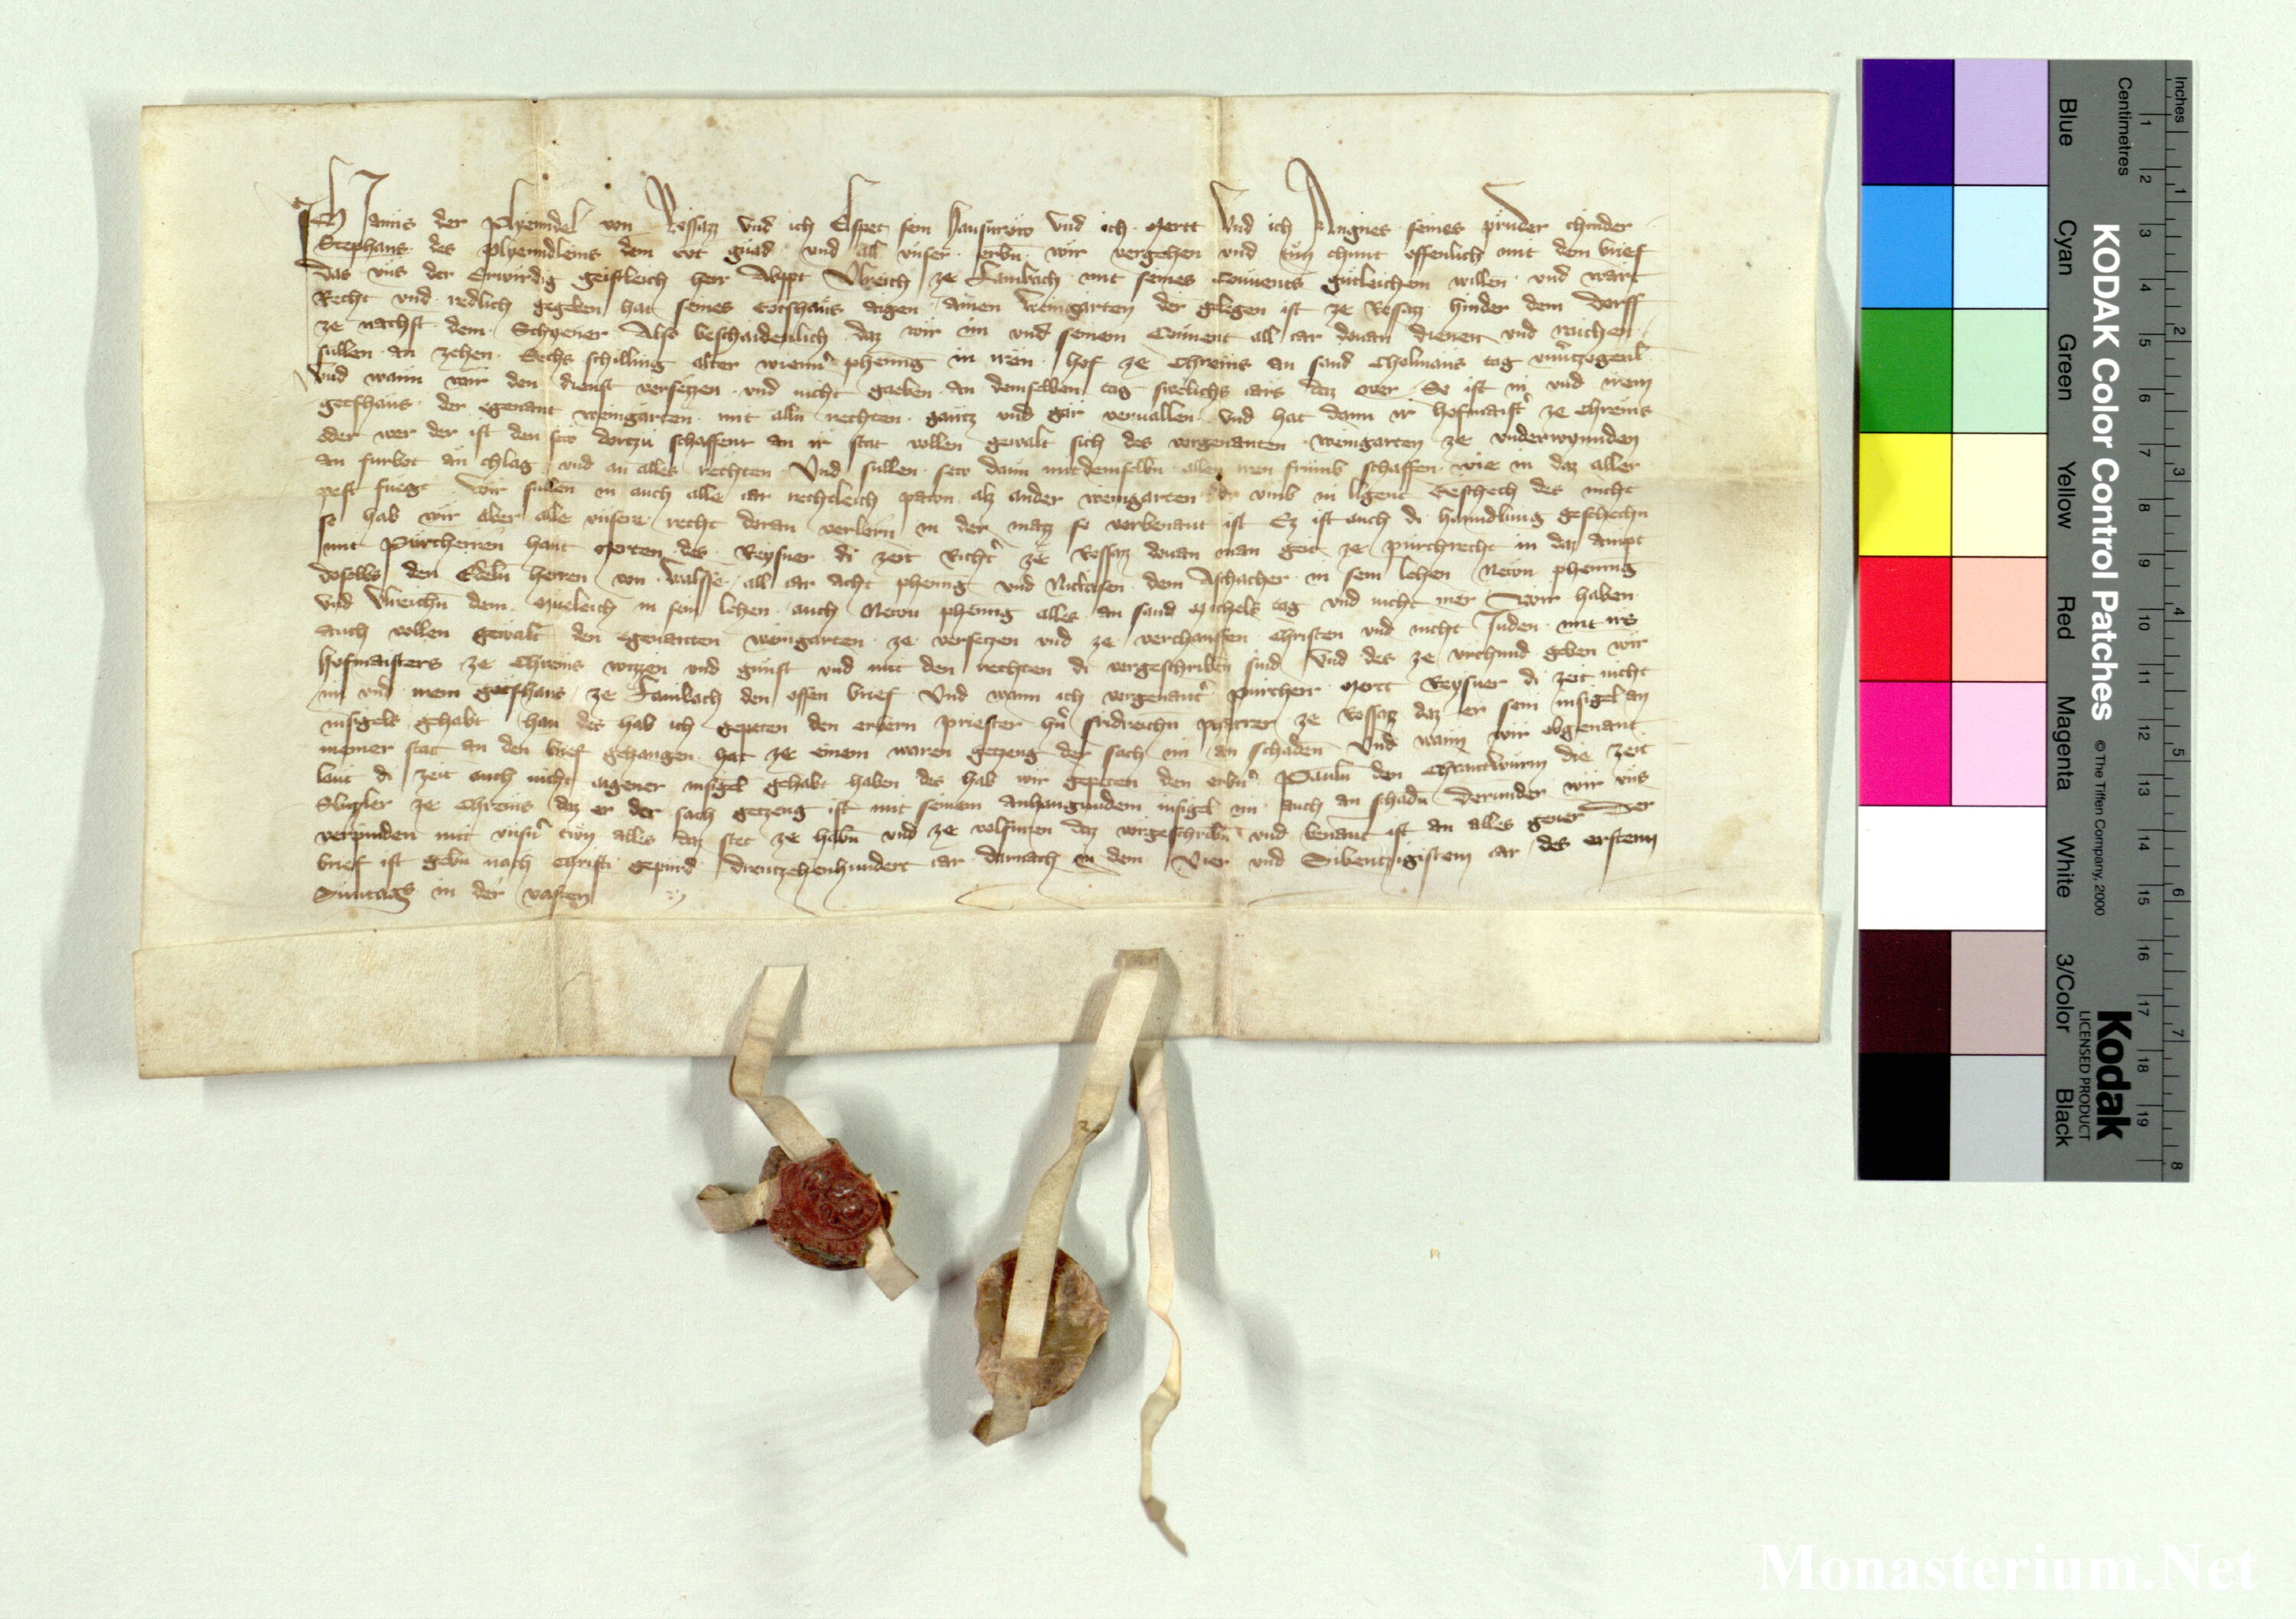 Ich Jannis der Plyemdel von Rossacz vnd ich Elspet sein hausurow vnd ich Mertt vnd ich Angnes seines pruder chinder
Stephans des Plyemdleins dem got gnad vnd all vnser erbn wir vergehen vnd tun chunt offenlich mit dem brief
das vns der Erwirdig geistleich herr Abppt Vlreich ze Lambach mit seines Conuents gutleichem willen vnd wart
Recht vnd redlich gegeben hat seines Gotshaus aigen ainen weingarten der gelegen ist ze Rossacz hinder dem dorff
ze nachst dem Schyener Also beschaidenlich daz wir im vnd seinem Conuent all iar douan dienen vnd raichen
sullen an zehen Sechs schilling alter wienner phennig in iren hof ze Chrems an sand Cholmans tag vnuerczogenl
vnd wann wir den dienst versetzen vnd nicht gaeben an demselben tag swelichs iars daz wer So ist in vnd irem
gotshaus der egenant weingarten mit alln rechten gantz vnd gar veruallen vnd hat dann ir hofmaister ze Chrems
oder wer der ist den seu dortzu schaffent an ir stat vollen gewalt sich des vorgenanten weingarten ze vnderwynnden
an furbot an chlag vnd an alles rechten Vnd sullen seu dann mit demselbn allen iren frumb schaffen wie in daz aller
pest fuegt Wir sullen in auch alle iar rechtleich pawn alz ander weingarten di vmb in ligent Geschech des nicht
so hab wir aber alle vnsere recht daran verlorn in der mazz so vorbenant ist Ez ist auch di hanndlung geschehn
mit Purcherren hant Merten des Reysner di zeit Richter ze Rossacz douan man geit ze purchrecht in daz ampt
doselbs den Edeln herren von Walsse all iar acht phennig vnd Niclasen dem Aschacher in sein lehen Newn phennig
vnd Vlreichn dem Mueleich in sein lehen auch Newn phennig alles an sand Michels tag vnd nicht mer Wir haben
auch vollen gewalt den egenanten weingarten ze versetzen vnd ze verchauffen Christen vnd nicht Juden mit irs
hofmaisters ze Chrems wizzen vnd gunst vnd mit den rechten di vorgeschriben sind Vnd des ze vrchund geben wir
im vnd irem gotshaus ze Lambach den offen brief Vnd wann ich vorgenanter purcherr Mert Reysner di zeit nicht
insigels gehabt han des hab ich gepeten den erbern priester hern fridreichn pharrer ze Rossacz daz er sein insigel an
meiner stat an den brief gehangen hat ze einem waren getzeug der sach im an schaden Vnd wann wir obgenant
laut di zeit auch nicht aigener insigel gehabt haben des hab wir gepeten den erbern Pauln den Chrautwurm die zeit
Sluzzler ze Chrems daz er der sach getzeug ist mit seinem anhangundem insigel im auch an schadn Derunder wir vns
verpinden mit vnsern trwn alles daz stet ze habn vnd ze volfuren daz vorgeschribn vnd benant ist an alles geuer Der
brief ist gebn nach Christi gepurd dreutzehenhundert iar darnach in dem Vier vnd Sibentzigistem iar des erstenn
Suntags in der vasten
KODAK Color Control Patches
© The Tiffen Company, 2000
Kodak
LICENSED PRODUCT
Blue Cyan Green Yellow Red Magenta White 3/Color Black
Inches 1 2 3 4 5 6 7 8
Centimetres 1 2 3 4 5 6 7 8 9 10 11 12 13 14 15 16 17 18 19
Monasterium.Net